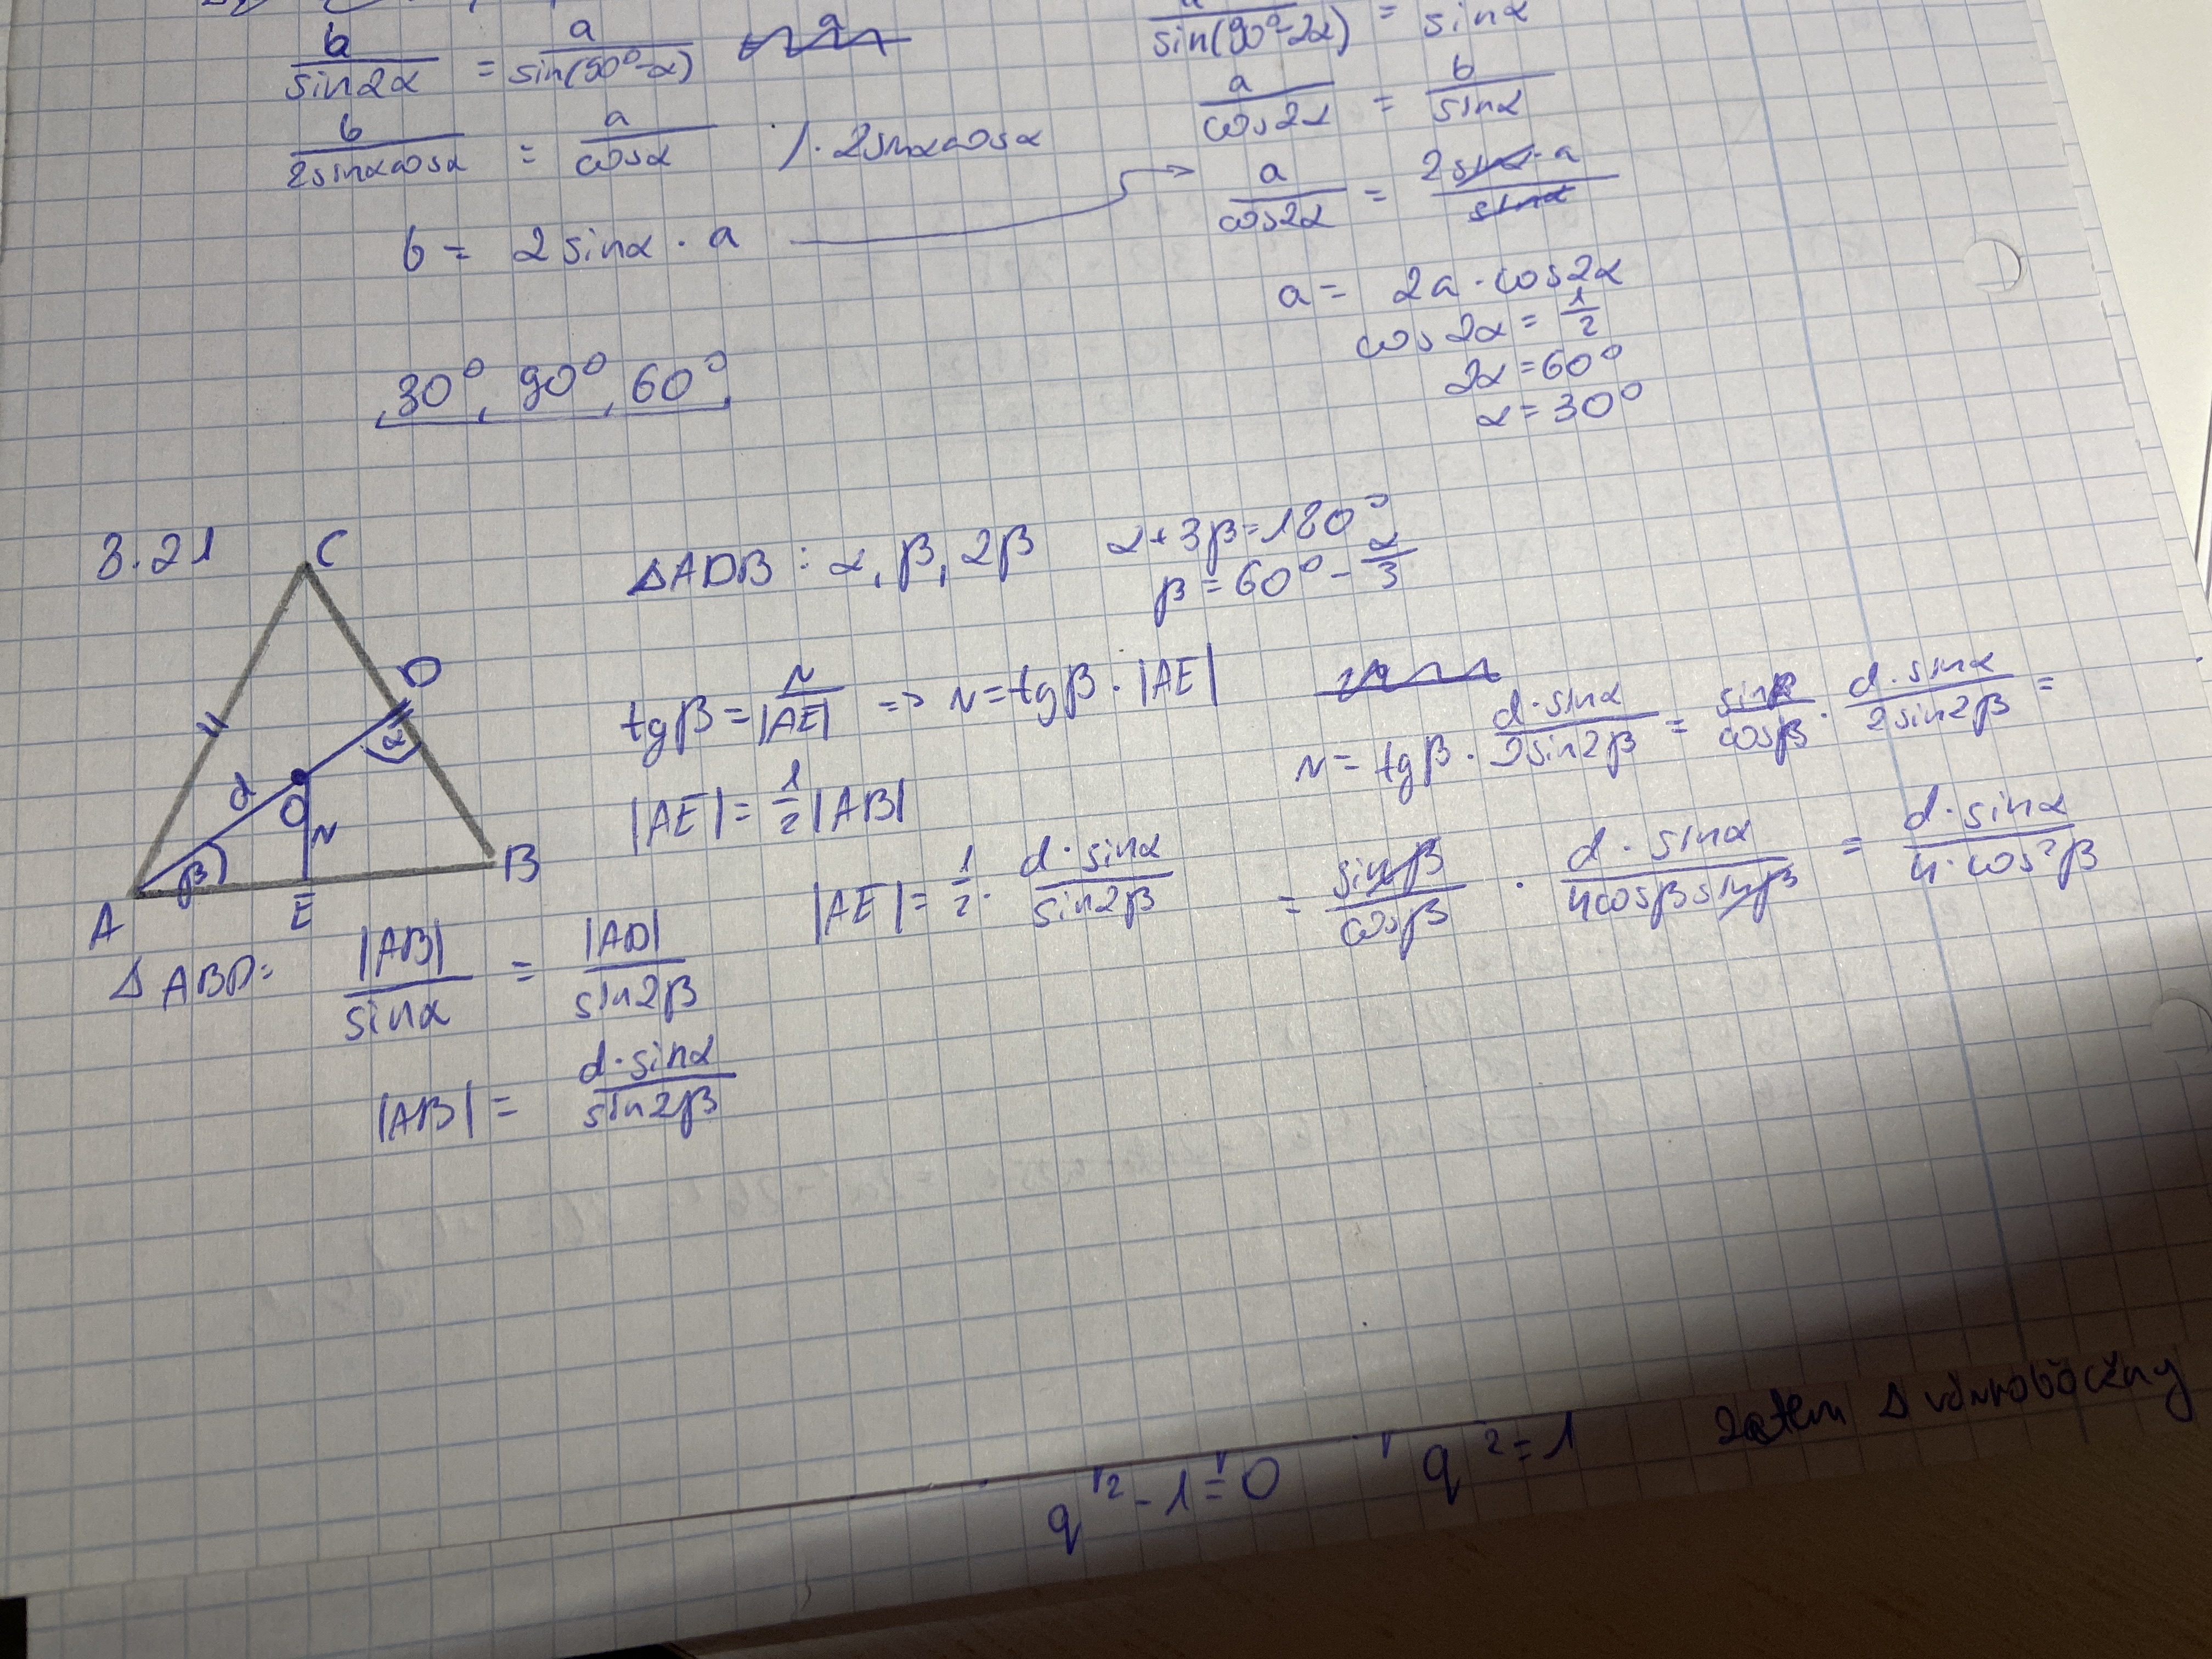 b/sin2α = a/sin(90°-α)
b/2sinαcosα = a/cosα /·2sinαcosα
b = 2sinα·a
30°, 90°, 60°
a/sin(90°-2α) = sinα
a/cos2α = b/sinα
a/cos2α = 2sinα·a/sinα
a = 2a·cos2α
cos2α = 1/2
2α = 60°
α = 30°
3.21
C
D
α
d
O
r
β
A
E
B
ΔADB: α, β, 2β
α+3β=180°
β=60°-α/3
tgβ = r/|AE| => r=tgβ·|AE|
|AE| = 1/2|AB|
|AE| = 1/2· d·sinα/sin2β
ΔABD: |AB|/sinα = |AD|/sin2β
|AB| = d·sinα/sin2β
r = tgβ· d·sinα/2sin2β = sinβ/cosβ · d·sinα/2sin2β =
= sinβ/cosβ · d·sinα/4cosβsinβ = d·sinα/4·cos²β
q¹²-1=0
q²=1
zatem Δ równoboczny